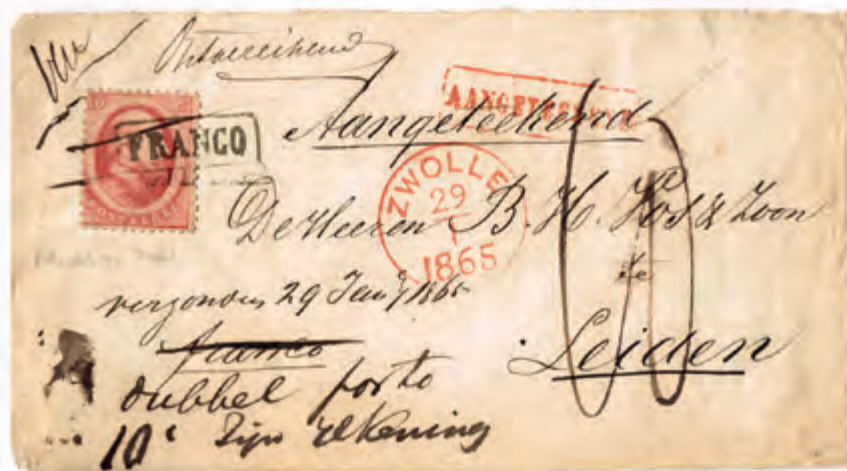 Ontoereikend
AANGETEEKEND
FRANCO
Aangeteekend
ZWOLLE
29
1
1865
De Heeren B. H. Vos & Zoon
te
verzonden 29 Jan 1865
Leiden
franco
dubbel porto
10 c Zijn rekening